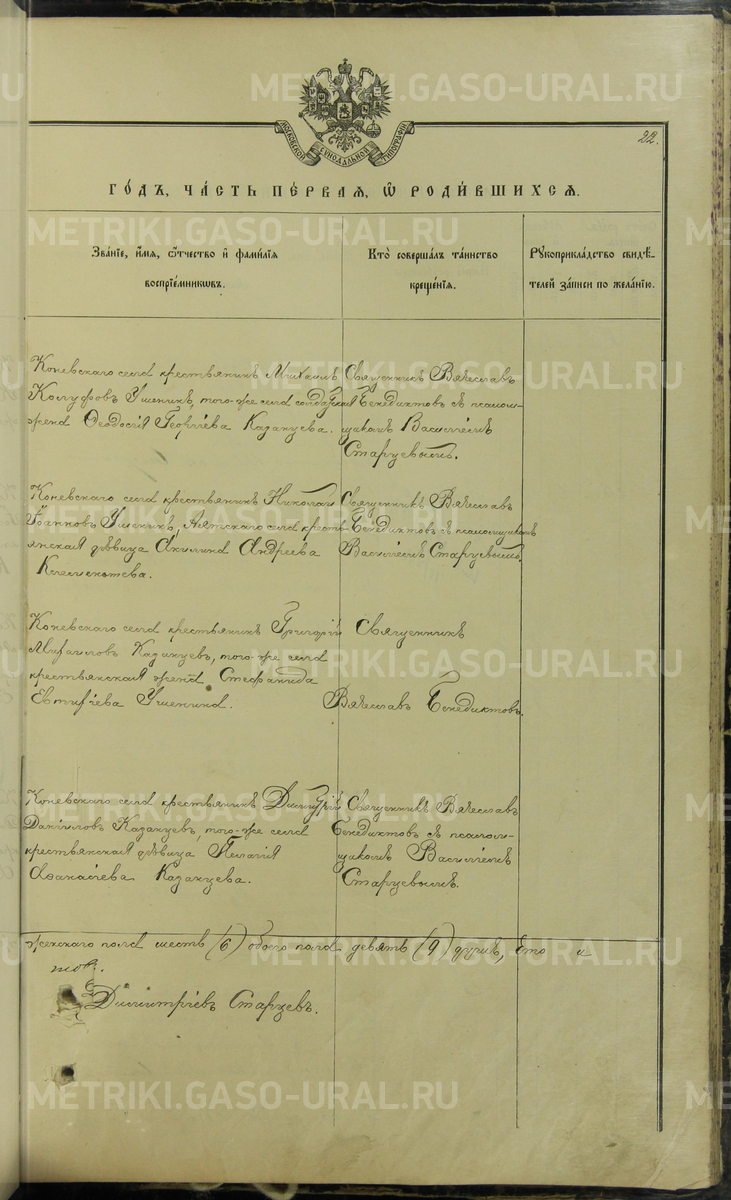 22.
МОСКОВСКОЙ СѴНОДАЛЬНОЙ ТИПОГРАФІИ
ГО́ДЪ, ЧА́СТЬ ПЕ́РВАЯ, Ѡ҆ РОДИ́ВШИХСЯ.
Зва́нїе, и҆́мя, ѻ҆́тчество и҆ фами́лїя
воспрїе́мникѡвъ.
Кто̀ соверша́лъ та́инство
креще́нїя.
Рꙋкоприкла́дство свидѣ́-
телей за́писи по жела́нїю.
Коневскаго села крестьянинъ Михаилъ
Ушенинъ, того-же села солдатская
жена Ѳеодосія Георгіева Казанцева.
Священникъ Вячеславъ
Бенедиктовъ съ псалом-
щикомъ Василіемъ
Старцевымъ.
Коневскаго села крестьянинъ Николай
Іоанновъ Ушенинъ, Аятскаго села кресть-
янская дѣвица Акилина Андреева
Священникъ Вячеславъ
Бенедиктовъ съ псаломщикомъ
Василіемъ Старцевымъ.
Коневскаго села крестьянинъ Григорій
Михаиловъ Казанцевъ, того-же села
крестьянская жена Стефанида
Евтихіева Ушенина.
Священникъ
Вячеславъ Бенедиктовъ.
Коневскаго села крестьянинъ Димитрій
Даніиловъ Казанцевъ, того-же села
крестьянская дѣвица Пелагія
Аѳанасіева Казанцева.
Священникъ Вячеславъ
Бенедиктовъ съ псалом-
щикомъ Василіемъ
Старцевымъ.
женскаго пола шесть (6) обоего пола девять (9) душъ,
Димитріевъ Старцевъ.
METRIKI.GASO-URAL.RU